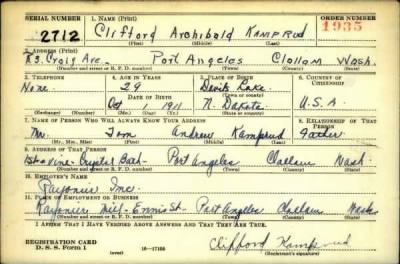 SERIAL NUMBER 1. NAME (Print) ORDER NUMBER
2712 Clifford Archibald Kamprud 1935
(First) (Middle) (Last)
2. ADDRESS (Print)
R3. Craig Ave. Port Angeles Clallam Wash.
(Number and street or R. F. D. number) (Town) (County) (State)
3. TELEPHONE 4. AGE IN YEARS 5. PLACE OF BIRTH 6. COUNTRY OF CITIZENSHIP
None. 29 Devils Lake
(Town or county)
DATE OF BIRTH
Oct 1 1911 N. Dakota. U.S.A.
(Exchange) (Number) (Mo.) (Day) (Yr.) (State or country)
7. NAME OF PERSON WHO WILL ALWAYS KNOW YOUR ADDRESS 8. RELATIONSHIP OF THAT PERSON
Mr. Tom Andrew Kamprud Father
(Mr., Mrs., Miss) (First) (Middle) (Last)
9. ADDRESS OF THAT PERSON
Vine Crystal Port Angeles Clallam Wash
(Number and street or R. F. D. number) (Town) (County) (State)
10. EMPLOYER'S NAME
Rayonier Inc.
11. PLACE OF EMPLOYMENT OR BUSINESS
Rayonier Mill - Ennis St - Port Angeles Clallam Wash
(Number and street or R. F. D. number) (Town) (County) (State)
I AFFIRM THAT I HAVE VERIFIED ABOVE ANSWERS AND THAT THEY ARE TRUE.
REGISTRATION CARD
D. S. S. Form 1 (over) 16—17105 Clifford Kamprud
(Registrant's signature)